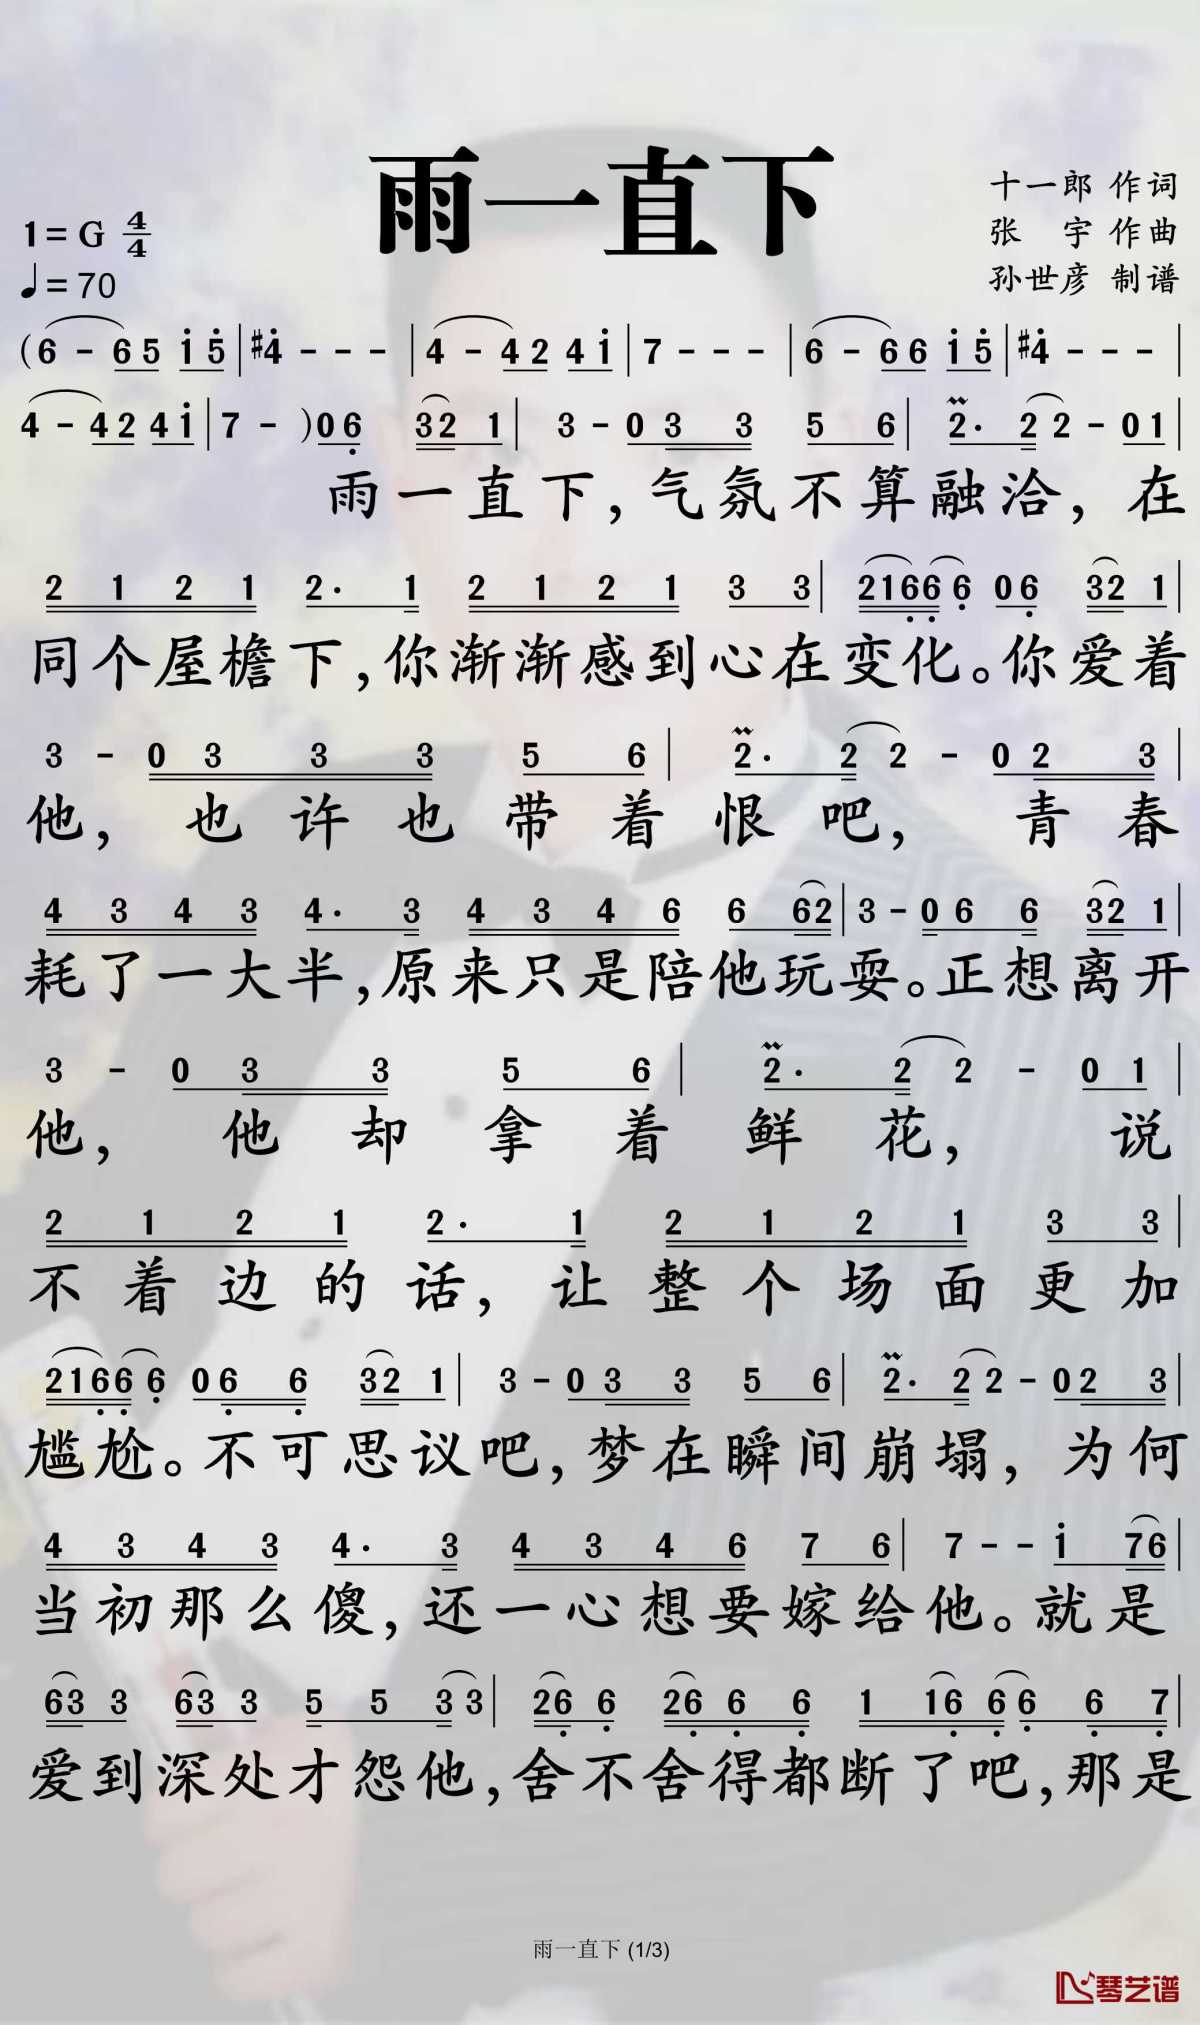 雨一直下
十一郎 作词
1=G 4/4
张 宇 作曲
♩=70
孙世彦 制谱
(6 - 6 5 i 5̇ | #4̇ - - - | 4 - 4 2 4 i | 7 - - - | 6 - 6 6 i 5̇ | #4̇ - - - |
4 - 4 2 4 i | 7 - ) 0 6̣ 3 2 1 | 3 - 0 3 3 5 6 | 2· 2 2 - 0 1 |
雨一直下,气氛不算融洽,在
2 1 2 1 2· 1 2 1 2 1 3 3 | 2 1 6̣ 6̣ 6̣ 0 6̣ 3 2 1 |
同个屋檐下,你渐渐感到心在变化。你爱着
3 - 0 3 3 3 5 6 | 2· 2 2 - 0 2 3 |
他,也许也带着恨吧,青春
4 3 4 3 4· 3 4 3 4 6 6 6 2 | 3 - 0 6 6 3 2 1 |
耗了一大半,原来只是陪他玩耍。正想离开
3 - 0 3 3 5 6 | 2· 2 2 - 0 1 |
他,他却拿着鲜花,说
2 1 2 1 2· 1 2 1 2 1 3 3 |
不着边的话,让整个场面更加
2 1 6̣ 6̣ 6̣ 0 6̣ 6̣ 3 2 1 | 3 - 0 3 3 5 6 | 2· 2 2 - 0 2 3 |
尴尬。不可思议吧,梦在瞬间崩塌,为何
4 3 4 3 4· 3 4 3 4 6 7 6 | 7 - - i 7 6 |
当初那么傻,还一心想要嫁给他。就是
6 3 3 6 3 3 5 5 3 3 | 2 6̣ 6̣ 2 6̣ 6̣ 6̣ 1 1 6̣ 6̣ 6̣ 6̣ 7̣ |
爱到深处才怨他,舍不舍得都断了吧,那是
雨一直下 (1/3)
琴艺谱